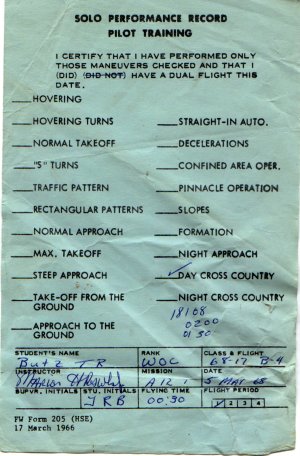 SOLO PERFORMANCE RECORD
PILOT TRAINING
I CERTIFY THAT I HAVE PERFORMED ONLY
THOSE MANEUVERS CHECKED AND THAT I
(DID) (DID NOT) HAVE A DUAL FLIGHT THIS
DATE.
___HOVERING
___HOVERING TURNS
___NORMAL TAKEOFF
___"S" TURNS
___TRAFFIC PATTERN
___RECTANGULAR PATTERNS
___NORMAL APPROACH
___MAX. TAKEOFF
___STEEP APPROACH
___TAKE-OFF FROM THE
GROUND
___APPROACH TO THE
GROUND
___STRAIGHT-IN AUTO.
___DECELERATIONS
___CONFINED AREA OPER.
___PINNACLE OPERATION
___SLOPES
___FORMATION
___NIGHT APPROACH
✓DAY CROSS COUNTRY
___NIGHT CROSS COUNTRY
18108
0200
0130
STUDENT'S NAME RANK CLASS & FLIGHT
Butz TR WOC 68-17 B-4
INSTRUCTOR MISSION DATE
A 12 1 5 MAY 68
SUPVR. INITIALS STU. INITIALS FLYING TIME FLIGHT PERIOD
TRB 00:30 1 2 3 4
FW Form 205 (HSE)
17 March 1966